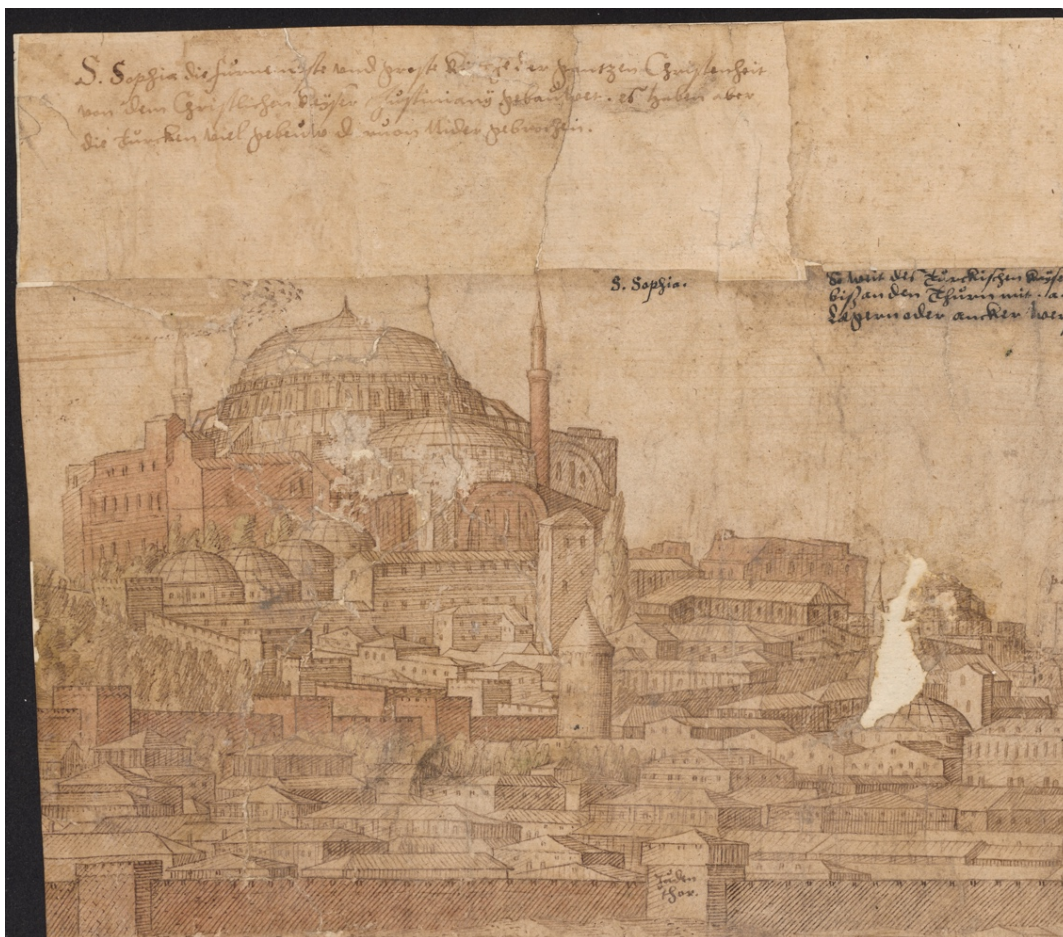 S. Sophia die furnemigste und groste Kirche der gantzen Christenheit
von dem Christlichen Keyser Justiniano gebauwet. es haben aber
die Turcken viel gebeuw d ruon Nider gebrochen.
S. Sophia.
So weit des Türckischen Keyse
biß an den Thurn mit
Legern oder ancker wer
Juden
thor.